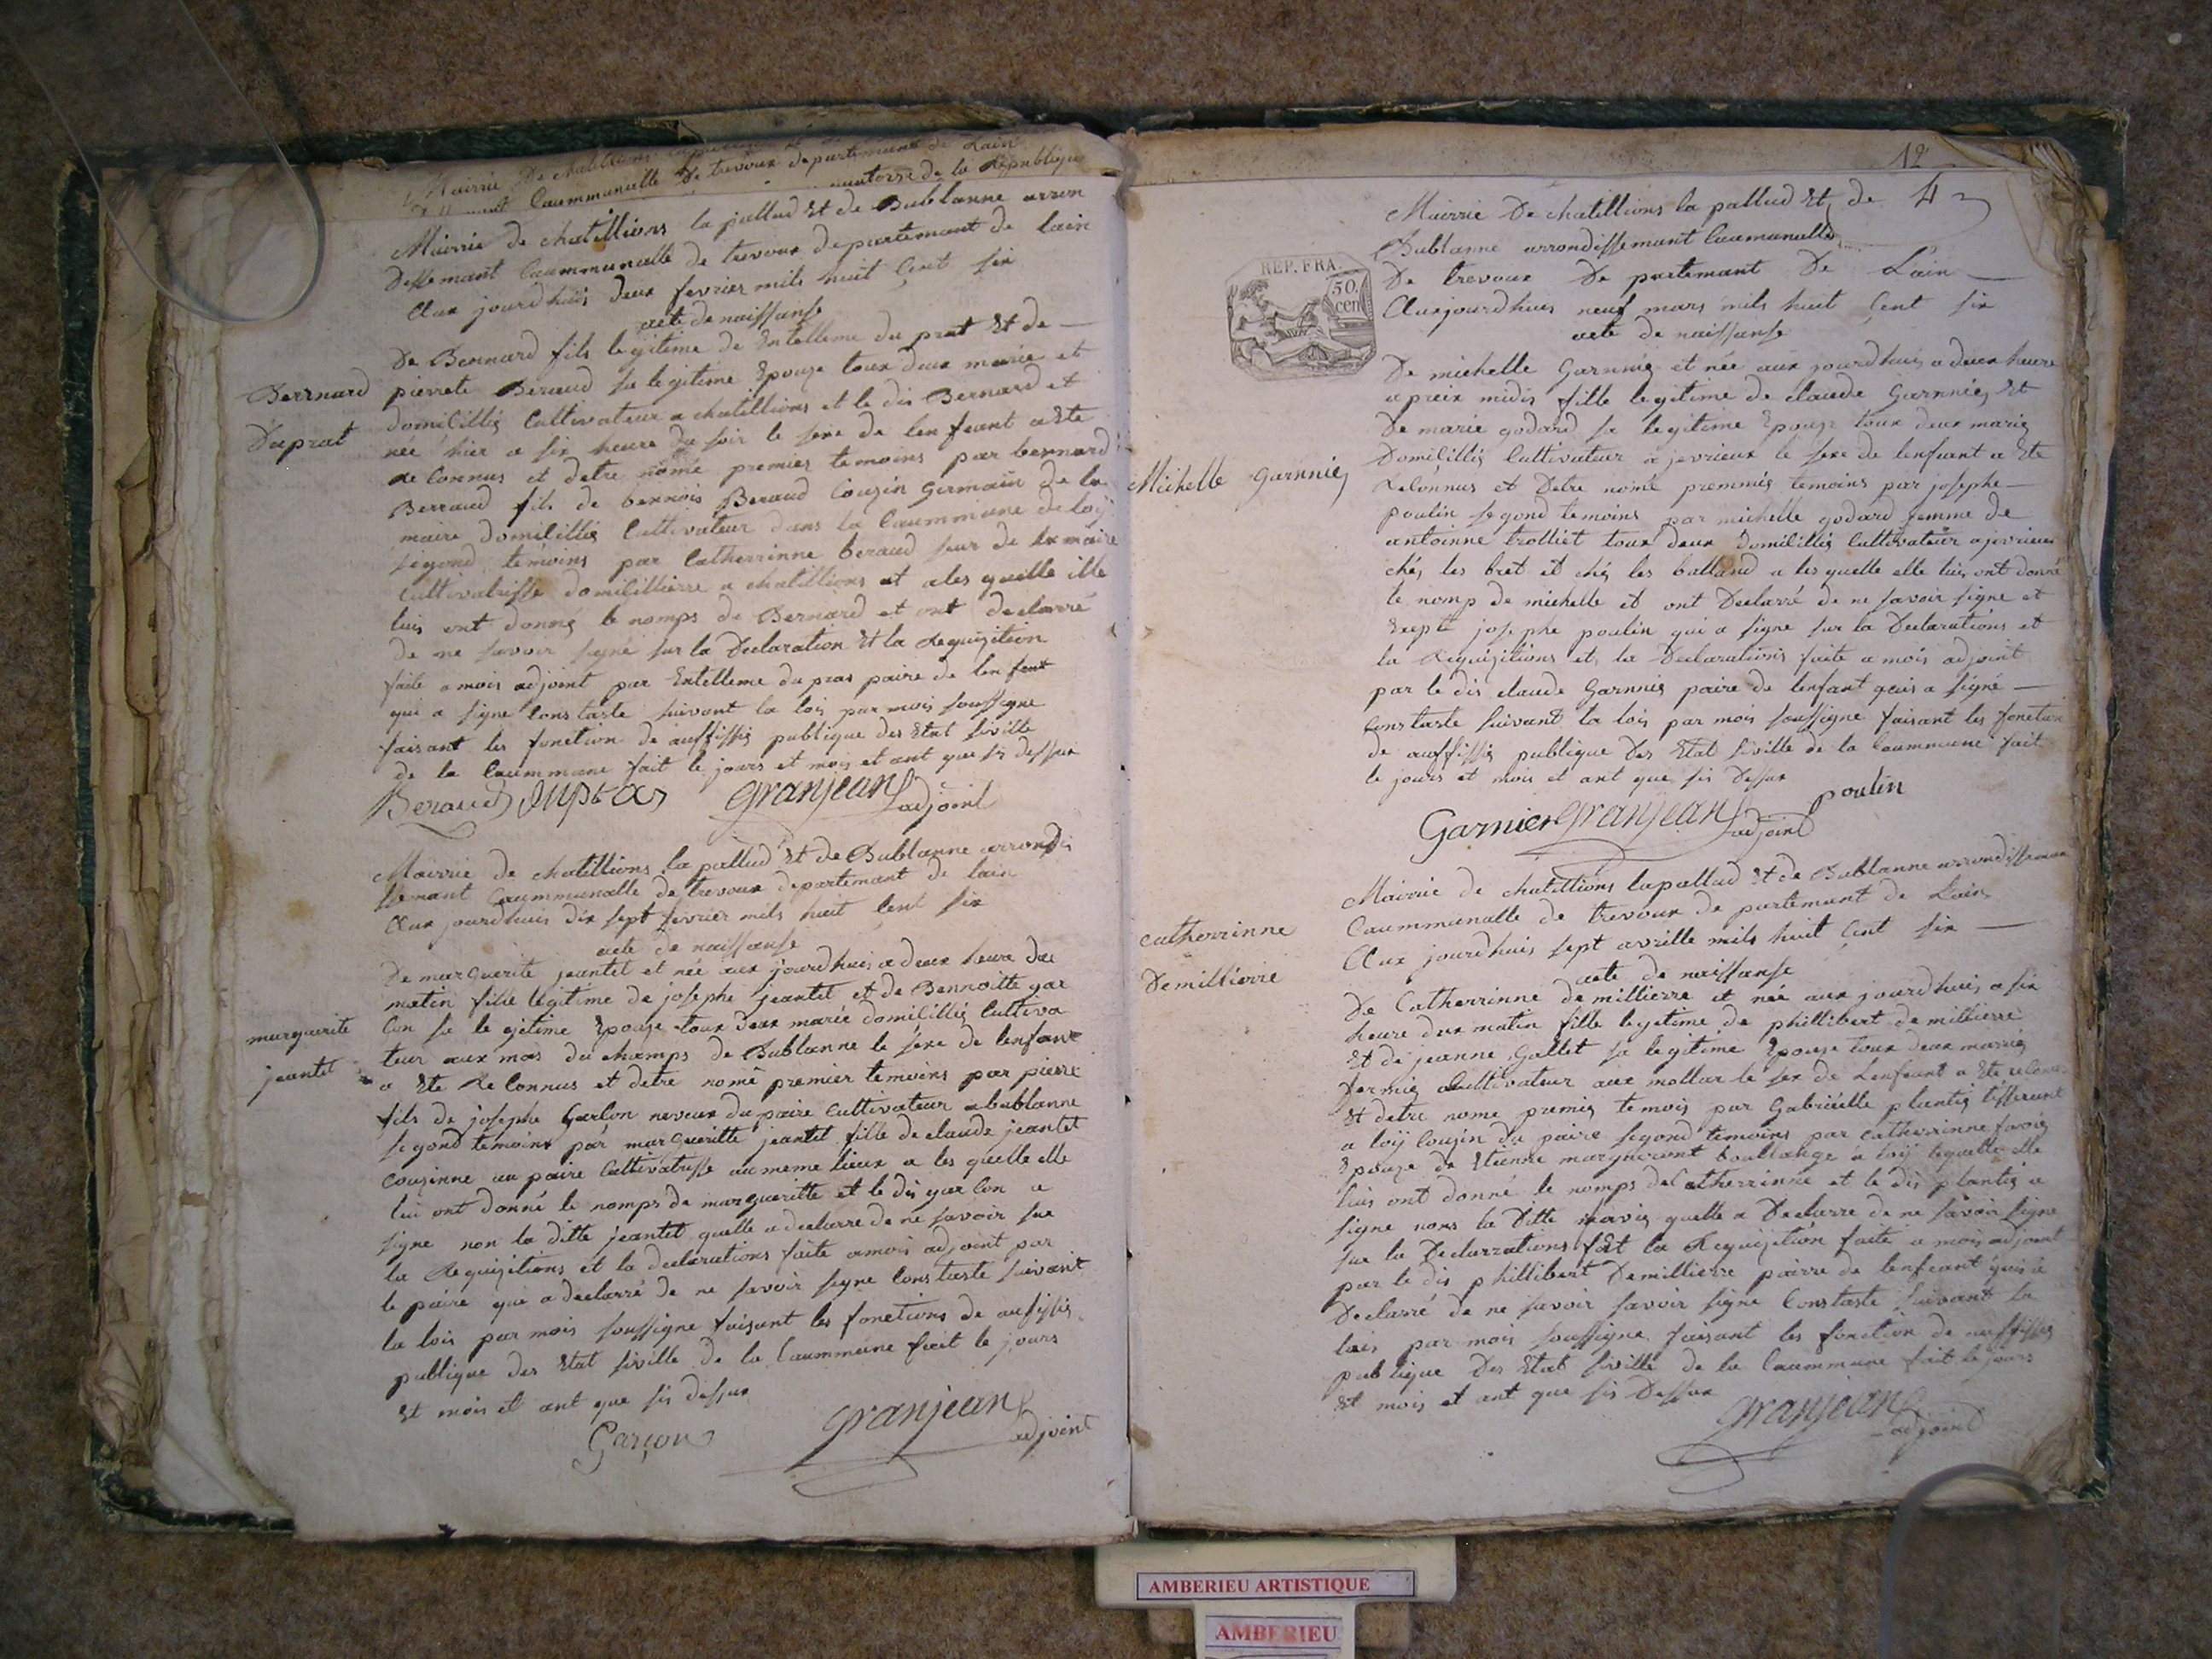 Mairrie De chatillions
Caummunalle De trevoux departemant de Lain
quatorze de la Republique
Mairrie de chatillions la pallud Et de Bublanne arron
dessemant Caummunalle de trevoux departemant de lain
Aux jourdhuis deux fevrier mils huit Cent six
acte de naissanse
Berrnard
Duprat
De Bennard fils legitime de Entelleme du prat Et de
pierrete Beraud sa legitime Epouze toux deux marie et
domicilliés Cultivateur a chatillions et le dis Bernard et
née hier a six heure du soir le sexe de lenfeant a Ete
Reconnus et detre nomé premier temoins par bernard
Berraud fils de bennois Beraud Couzin Germain de la
maire domicilliés Cultivateur dans la Caummune de loÿ
segond temoins par Catherrinne beraud seur de la maire
Cultivatrisse domicillierre a chatillions et a les quelle ille
luis ont donné le nomps de Bernard et ont declarré
de ne savoir signé sur la Declaration Et la Requizition
faite a mois adjoint par Entelleme du pras paire de lenfent
qui a signe Constaste suivant la lois par mois soussigne
faisant les fonction de auffissis publique des Etat siville
de la Caummune fait le jours et mois et ant que sis dessux
Beraud Dupras granjean adjoint
Mairrie de chatillions la pallud Et de Bublanne arrondis
semant Caummunalle de trevoux departemant de lain
Aux jourdhuis dix sept fevrier mils huit Cent six
acte de naissanse
marguerite
jeantet
De marguerite jeantet et née aux jourdhuis a deux heure du
matin fille legitime de josephe jeantet et de Bennoitte gar
Con sa legitime Epouze toux deux marie domicilliés Cultiva
teur aux mas du champs de Bublanne le sexe de lenfant
a Ete Reconnus et detre nomé premier temoins par pierre
fils de josephe Garcon neveux du paire Cultivateur a bublanne
segond temoins par margueritte jeantet fille de claude jeantet
Couzinne au paire Cultivatrisse au meme lieux a les quelle elle
lui ont donné le nomps de margueritte et le dis garcon a
signe non la ditte jeantet quelle a declarre de ne savoir sur
la Requizitions et la declarations faite a mois adjoint par
le paire qui a declarré de ne savoir signe Constaste suivant
la lois par mois soussigne faisant les fonctions de auffissis
publique des Etat siville de la Caummune fait le jours
Et mois et ant que sis dessux
Garçon granjean adjoint
12
Mairrie De chatillions la pallud Et de 4
Bublanne arrondissemant Caumunalle
De trevoux De partemant De Lain
REP. FRA.
50. cen
Auxjourdhuis neuf mars mils huit Cent six
acte de naissanse
Michelle garnnié
De michelle Garnnié et née aux jourdhuis a deux heure
apreix midis fille legitime de claude Garnnié Et
De marie godard sa legitime Epouze toux deux marié
Domicilliés Cultivateur a jevrieux le sexe de lenfeant a Ete
Reconnus et Detre nomé premmié temoins par josephe
poulin segond temoins par michelle godard femme de
antoinne trolliet toux deux domicilliés Cultivateur a jevrieux
chés les bret et chés les balland a les quelle elle luis ont donné
le nomp de michelle et ont Declarré de ne savoir signe et
Exepte josephe poulin qui a signe sur la Declarations et
la Requizitions et la Declarations faite a mois adjoint
par le dis claude Garnnié paire de lenfant quis a signé
Constaste suivant la lois par mois soussigne faisant les fonction
de auffissis publique des Etat siville de la Caummune fait
le jours et mois et ant que sis Dessux
Garnier granjean adjoint poulin
Mairrie de chatillions lapallud Et de Bublanne arrondissemant
Caummunalle de trevoux de partemant de Lain
Aux jourdhuis sept avrille mils huit Cent six
acte de naissanse
catherrinne
Demillierre
De Catherrinne de millierre et née aux jourdhuis a six
heure dux matin fille legitime de phillibert de millierre
Et de jeanne Gallet sa legitime Epouze toux deux marriés
fermié Cultivateur aux mollar le sex de Lenfeant a Ete reconnu
Et detre nome premié temois par Gabriëlle plantiés tisserant
a loÿ Couzin du paire segond temoins par catherrinne favié
Epouze de Etienne margneront boullange a loÿ lequelle elle
luis ont donné le nomps de Catherrinne et le dis plantié a
signe nons la Ditte favié quelle a Declarre de ne savoir signe
sur la Declarrations Et la Requizition faite a mois adjoint
par le dis phillibert Demillierre pairre de lenfeant quis a
Declarré de ne savoir savoir signe Constaste suivant la
lois par mois soussigne faisant les fonction de auffissis
publique Des Etat siville de la Caummune fait le jours
Et mois et ant que sis Dessux
granjean adjoint
AMBERIEU ARTISTIQUE
AMBERIEU